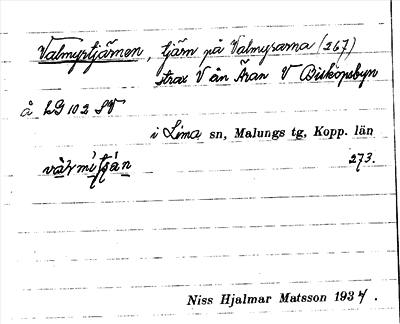 Valmyrtjärnen, tjärn på Valmyrarna (267)
strax V ån Äran V Biskopsbyn
å LG 102 SV
i Lima sn, Malungs tg, Kopp. län
273.
Niss Hjalmar Matsson 1934.